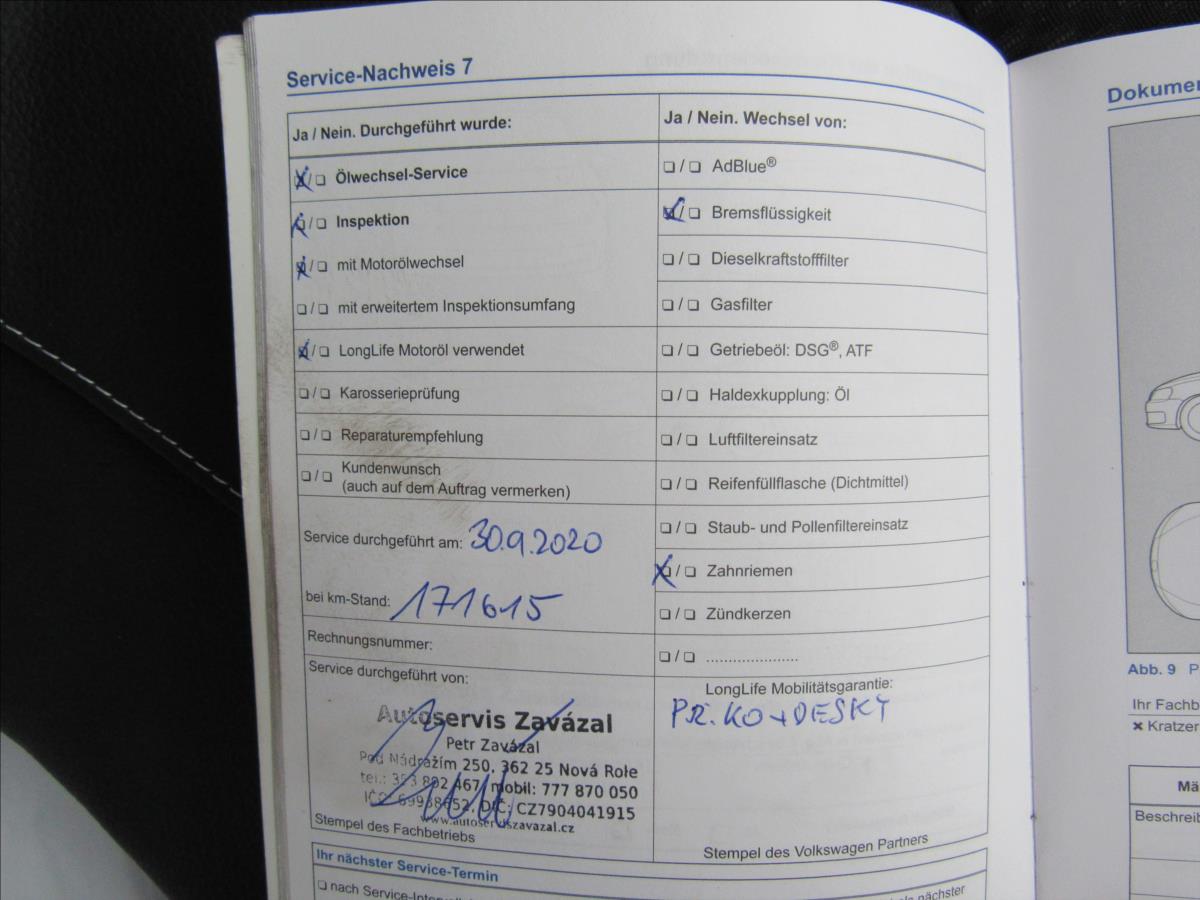 Service-Nachweis 7
Ja / Nein. Durchgeführt wurde:
❏ / ❏ Ölwechsel-Service
❏ / ❏ Inspektion
❏ / ❏ mit Motorölwechsel
❏ / ❏ mit erweitertem Inspektionsumfang
❏ / ❏ LongLife Motoröl verwendet
❏ / ❏ Karosserieprüfung
❏ / ❏ Reparaturempfehlung
❏ / ❏ Kundenwunsch
(auch auf dem Auftrag vermerken)
Service durchgeführt am: 30.9.2020
bei km-Stand: 171615
Rechnungsnummer:
Service durchgeführt von:
Autoservis Zavázal
Petr Zavázal
Pod Nádražím 250, 362 25 Nová Role
tel.: 353 892 467, mobil: 777 870 050
IČO: DIČ: CZ7904041915
www.autoserviszavazal.cz
Stempel des Fachbetriebs
Ja / Nein. Wechsel von:
❏ / ❏ AdBlue®
❏ / ❏ Bremsflüssigkeit
❏ / ❏ Dieselkraftstofffilter
❏ / ❏ Gasfilter
❏ / ❏ Getriebeöl: DSG®, ATF
❏ / ❏ Haldexkupplung: Öl
❏ / ❏ Luftfiltereinsatz
❏ / ❏ Reifenfüllflasche (Dichtmittel)
❏ / ❏ Staub- und Pollenfiltereinsatz
❏ / ❏ Zahnriemen
❏ / ❏ Zündkerzen
❏ / ❏ .....................
LongLife Mobilitätsgarantie:
PŘ. KO + DESKY
Stempel des Volkswagen Partners
Ihr nächster Service-Termin
❏ nach Service-
nächster
Dokumen
Abb. 9 P
Ihr Fachb
✖ Kratzer
Mä
Beschreib